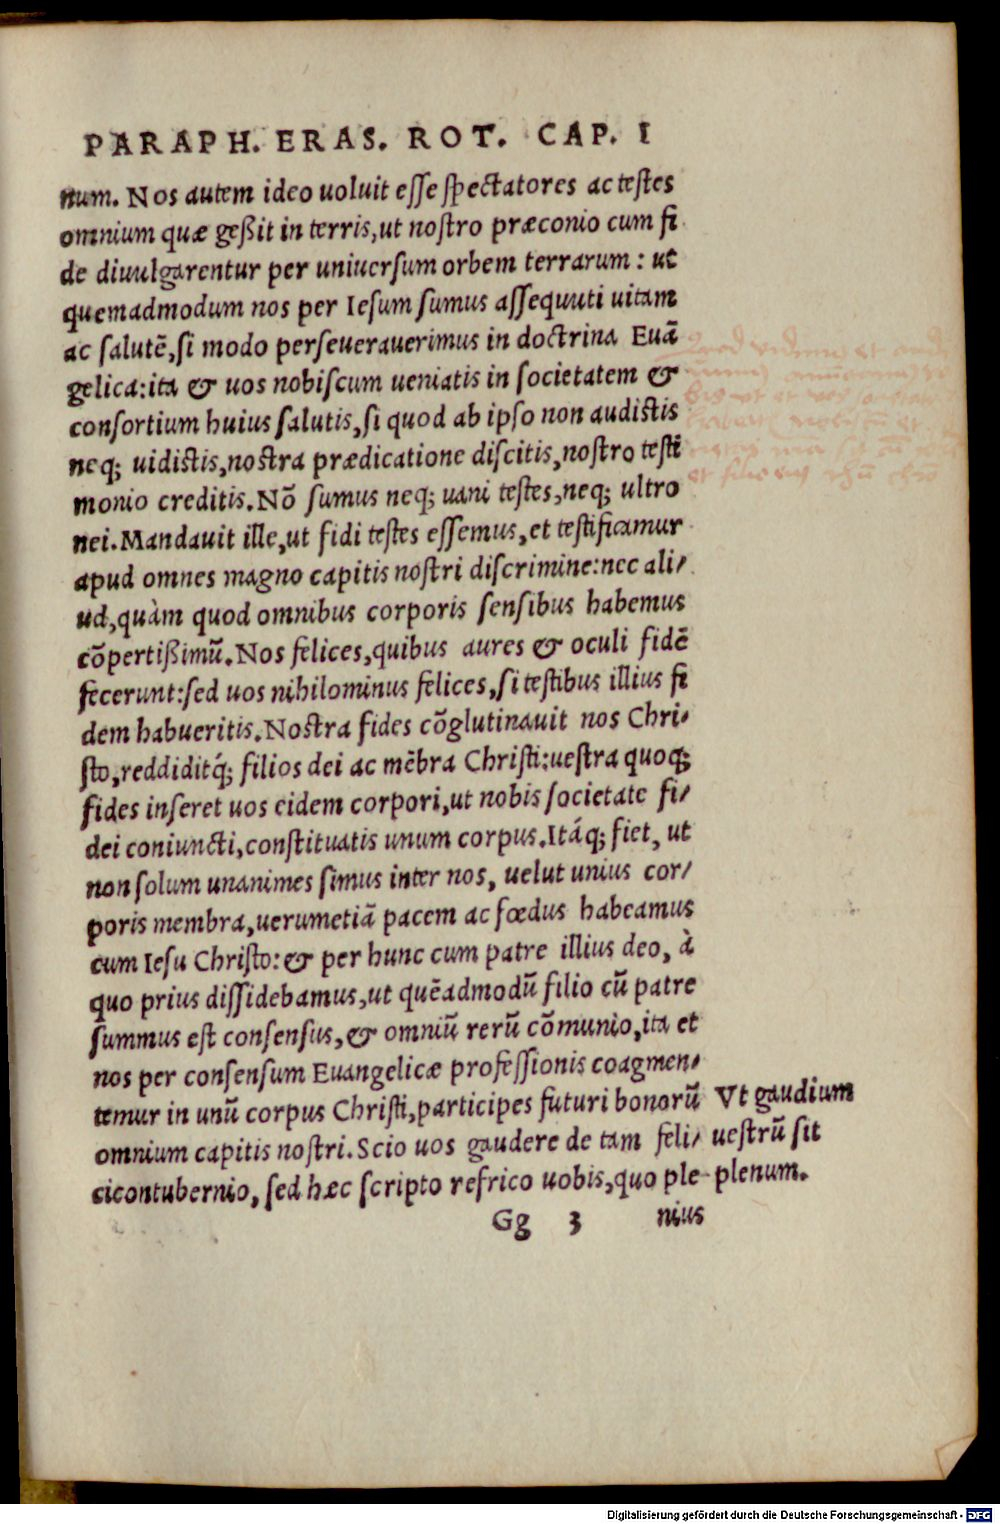 PARAPH. ERAS. ROT. CAP. I
num. Nos autem ideo uoluit eſſe ſpectatores ac teſtes
omnium quæ geßit in terris,ut noſtro præconio cum fi
de diuulgarentur per uniuerſum orbem terrarum : ut
quemadmodum nos per Ieſum ſumus aſſequuti uitam
ac ſalutẽ,ſi modo perſeuerauerimus in doctrina Euã
gelica:ita & uos nobiſcum ueniatis in ſocietatem &
conſortium huius ſalutis,ſi quod ab ipſo non audiſtis
neq; uidiſtis,noſtra prædicatione diſcitis,noſtro teſti
monio creditis.Nõ ſumus neq; uani teſtes,neq; ultro
nei.Mandauit ille,ut fidi teſtes eſſemus,et teſtificamur
apud omnes magno capitis noſtri diſcrimine:nec ali/
ud,quàm quod omnibus corporis ſenſibus habemus
cõpertißimũ.Nos felices,quibus aures & oculi fidẽ
fecerunt:ſed uos nihilominus felices,ſi teſtibus illius fi
dem habueritis.Noſtra fides cõglutinauit nos Chri/
ſto,reddiditq́; filios dei ac mẽbra Chriſti:ueſtra quoq;
fides inſeret uos eidem corpori,ut nobis ſocietate fi/
dei coniuncti,conſtituatis unum corpus.Itáq; fiet, ut
non ſolum unanimes ſimus inter nos, uelut unius cor/
poris membra,uerumetiã pacem ac fœdus habeamus
cum Ieſu Chriſto:& per hunc cum patre illius deo, à
quo prius diſſidebamus,ut quẽadmodũ filio cũ patre
ſummus eſt conſenſus,& omniũ rerũ cõmunio,ita et
nos per conſenſum Euangelicæ profeſſionis coagmen/
temur in unũ corpus Chriſti,participes futuri bonorũ
omnium capitis noſtri.Scio uos gaudere de tam feli/
ci contubernio, ſed hæc ſcripto refrico uobis,quo ple-
Vt gaudium
ueſtrũ ſit
plenum.
Gg 3 nius
Digitalisierung gefördert durch die Deutsche Forschungsgemeinschaft - DFG